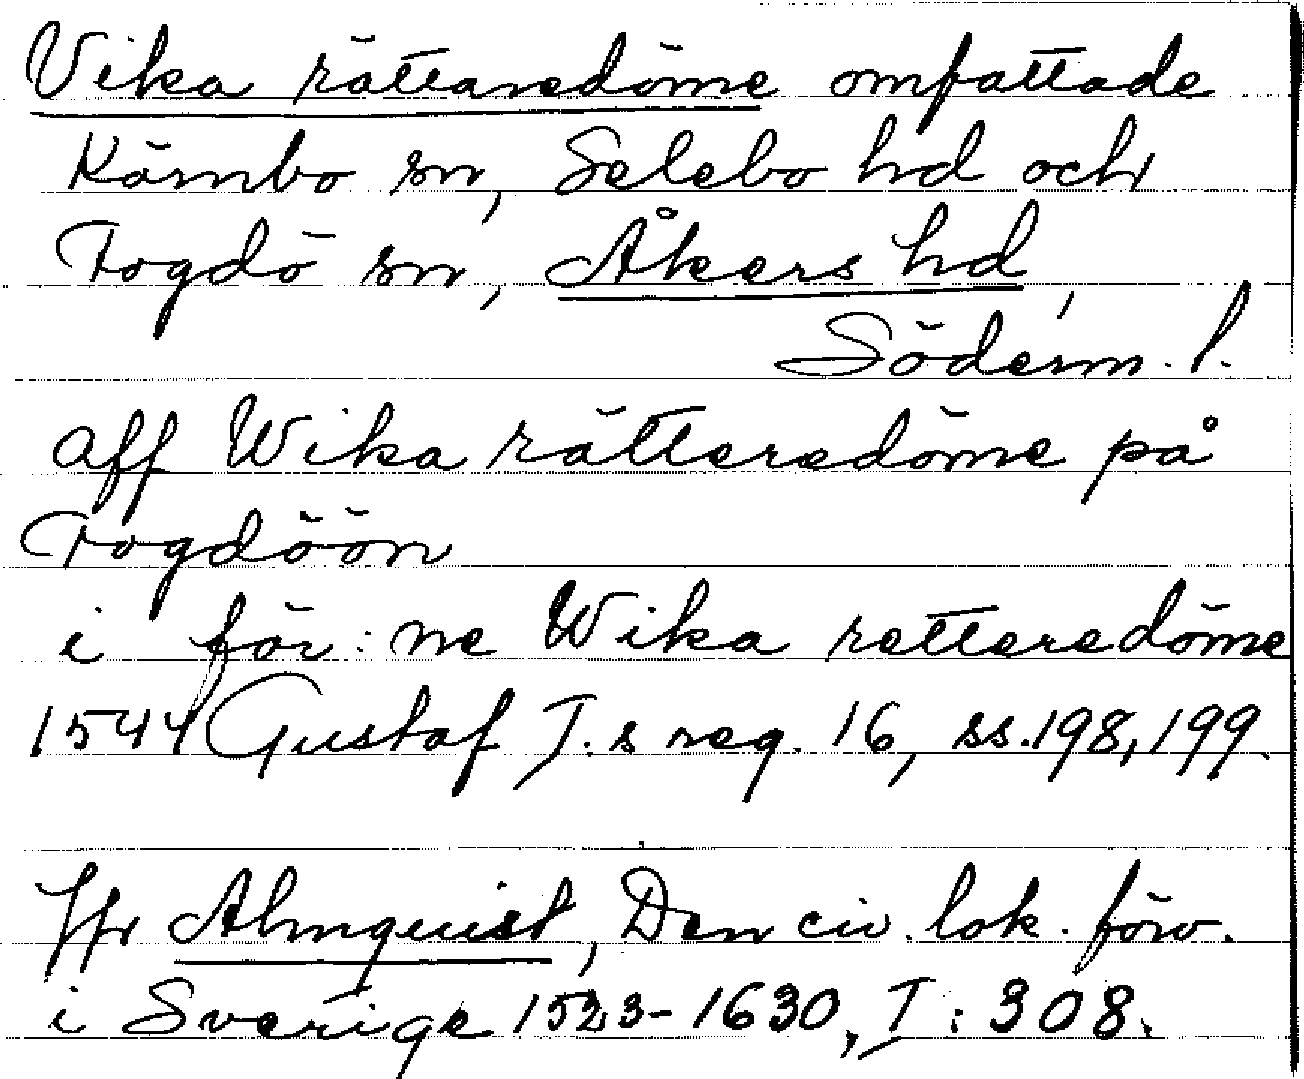 Vika rättaredöme omfattade
Kärnbo sn, Selebo hd och
Fogdö sn, Åkers hd,
Söderm. l.
aff Wika rätteredöme på
Fogdöön
i för:ne Wika retteredöme
1544 Gustaf I:s reg. 16, ss. 198, 199.
Jfr Almquist, Den civ. lok. förv.
i Sverige 1523-1630, I: 308.